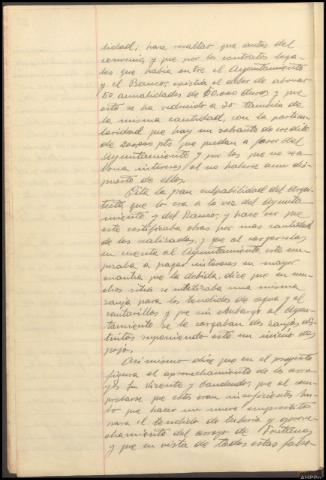 lidad; hace resaltar que antes del
convenio y que por los contratos lega-
les que había entre el Ayuntamiento
y el Banco, existía el deber de abonar
50 anualidades de 60.000 duros y que
esto se ha reducido a 30 también de
la misma cantidad, con la particu-
laridad que hay un sobrante de crédito
de pts que quedan a favor del
Ayuntamiento y por los que no se
abona intereses al no haberse aun dis-
puesto de ellos.
Cita la gran culpabilidad del Arqui-
tecto que lo era a la vez del Ayunta-
miento y del Banco, y hace ver que
este certificaba obras por mas cantidad
de las realizadas, y que al
en cuenta al Ayuntamiento este em-
pezaba a pagar intereses en mayor
cuantía que la debida, dice que en mu-
chos sitios se utilizaba una misma
zanja para los tendidos de agua y al
cantarillas y que sin embargo al Ayun-
tamiento se le cargaban dos zanjas dis-
tintas suponiendo esto un indicio de
pago.
Asimismo dice que en el proyecto
figura el aprovechamiento de los arro-
yos San Vicente y y que al com-
probarse que estos eran insuficientes hu-
bo que hacer un nuevo emprestito
para el tendido de tubería y aprove-
chamiento del arroyo de
y que en vista de todas estas